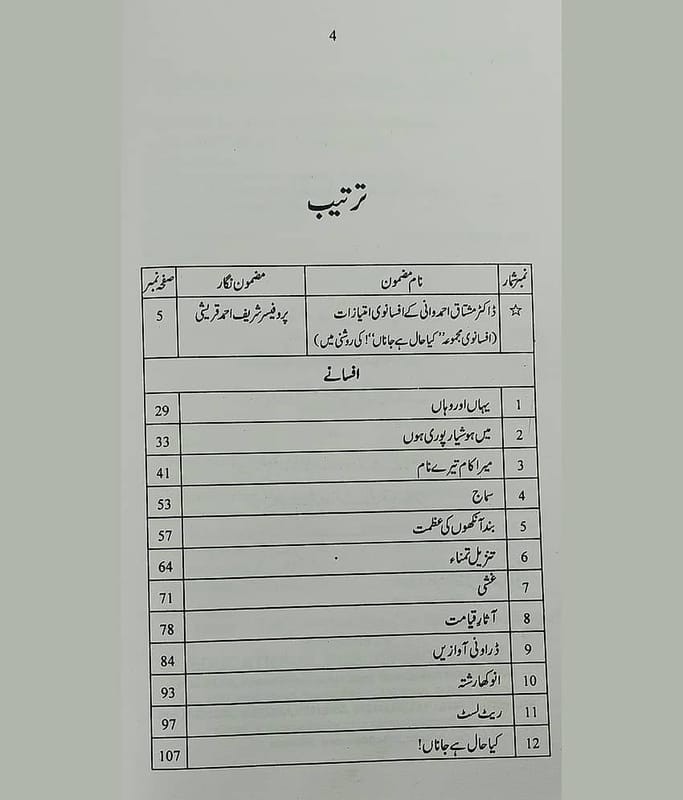 4
ترتیب
نمبر شمار نام مضمون مضمون نگار صفحہ نمبر
☆ ڈاکٹر مشتاق احمد وانی کے افسانوی امتیازات پروفیسر شریف احمد قریشی 5
(افسانوی مجموعہ ”کیا حال ہے جاناں“! کی روشنی میں)
افسانے
1 یہاں اور وہاں 29
2 میں ہوشیار پوری ہوں 33
3 میرا کام تیرے نام 41
4 سماج 53
5 بند آنکھوں کی عظمت 57
6 تنزیل تمناء 64
7 غشی 71
8 آثارِ قیامت 78
9 ڈراونی آوازیں 84
10 انوکھا رشتہ 93
11 ریٹ لسٹ 97
12 کیا حال ہے جاناں! 107